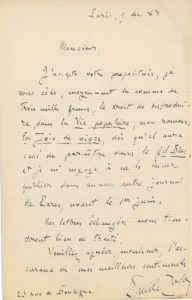 Paris, 9 dec 83
Monsieur,
J'accepte votre proposition, je
vous cède, moyennant la somme de
trois mille francs, le droit de reprodui-
re dans la Vie populaire, mon roman:
La Joie de vivre, dès qu'il aura
cessé de paraître dans le Gil Blas,
et je m'engage à ne le laisser
publier dans aucun autre journal
de Paris, avant le 1er juin.
Nos lettres échangées nous tien-
dront lieu de traité.
Veuillez agréer, monsieur, l'as-
surance de mes meilleurs sentiments
Emile Zola
23 rue de Boulogne